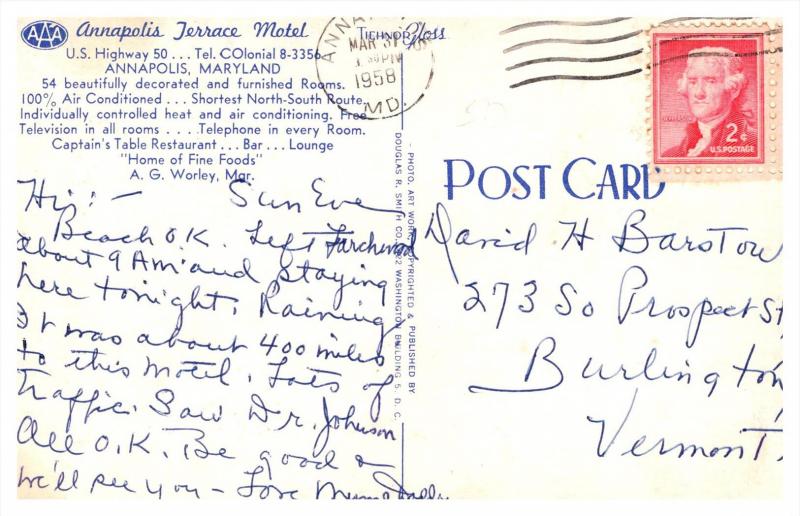 AAA
Annapolis Terrace Motel
U.S. Highway 50 . . . Tel. COlonial 8-3356
ANNAPOLIS, MARYLAND
54 beautifully decorated and furnished Rooms.
100% Air Conditioned . . . Shortest North-South Route.
Individually controlled heat and air conditioning. Free
Television in all rooms . . . . Telephone in every Room.
Captain's Table Restaurant . . . Bar . . . Lounge
"Home of Fine Foods"
A. G. Worley, Mgr.
Hi:- Sun Eve
Beach O.K. Left
about 9 AM and staying
here tonight. Raining
It was about 400 miles
to this Motel. Lots of
traffic. Saw Dr. Johnson
All O.K. Be good &
we'll see you - Love
TICHNOR Gloss
PHOTO, ART WORK, COPYRIGHTED & PUBLISHED BY
DOUGLAS R. SMITH CO. WASHINGTON BUILDING 5, D. C.
MAR 31
PM
1958
MD.
JEFFERSON
2¢
U.S. POSTAGE
POST CARD
David H Barstow
273 So Prospect St
Burlington,
Vermont.